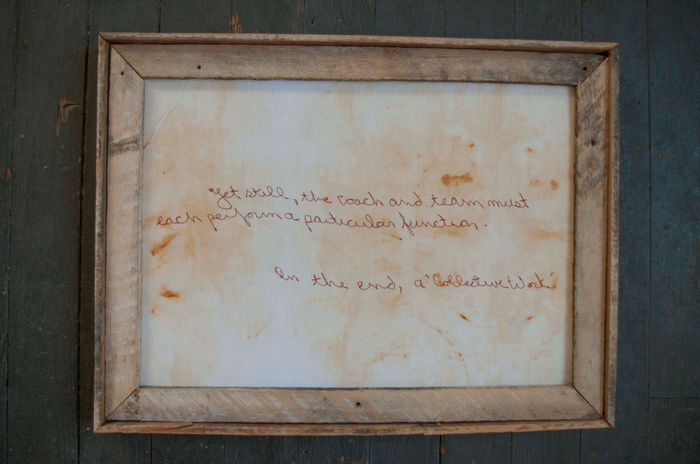 Yet still, the coach and team must
each perform a particular function.
In the end, a 'Collective Work'